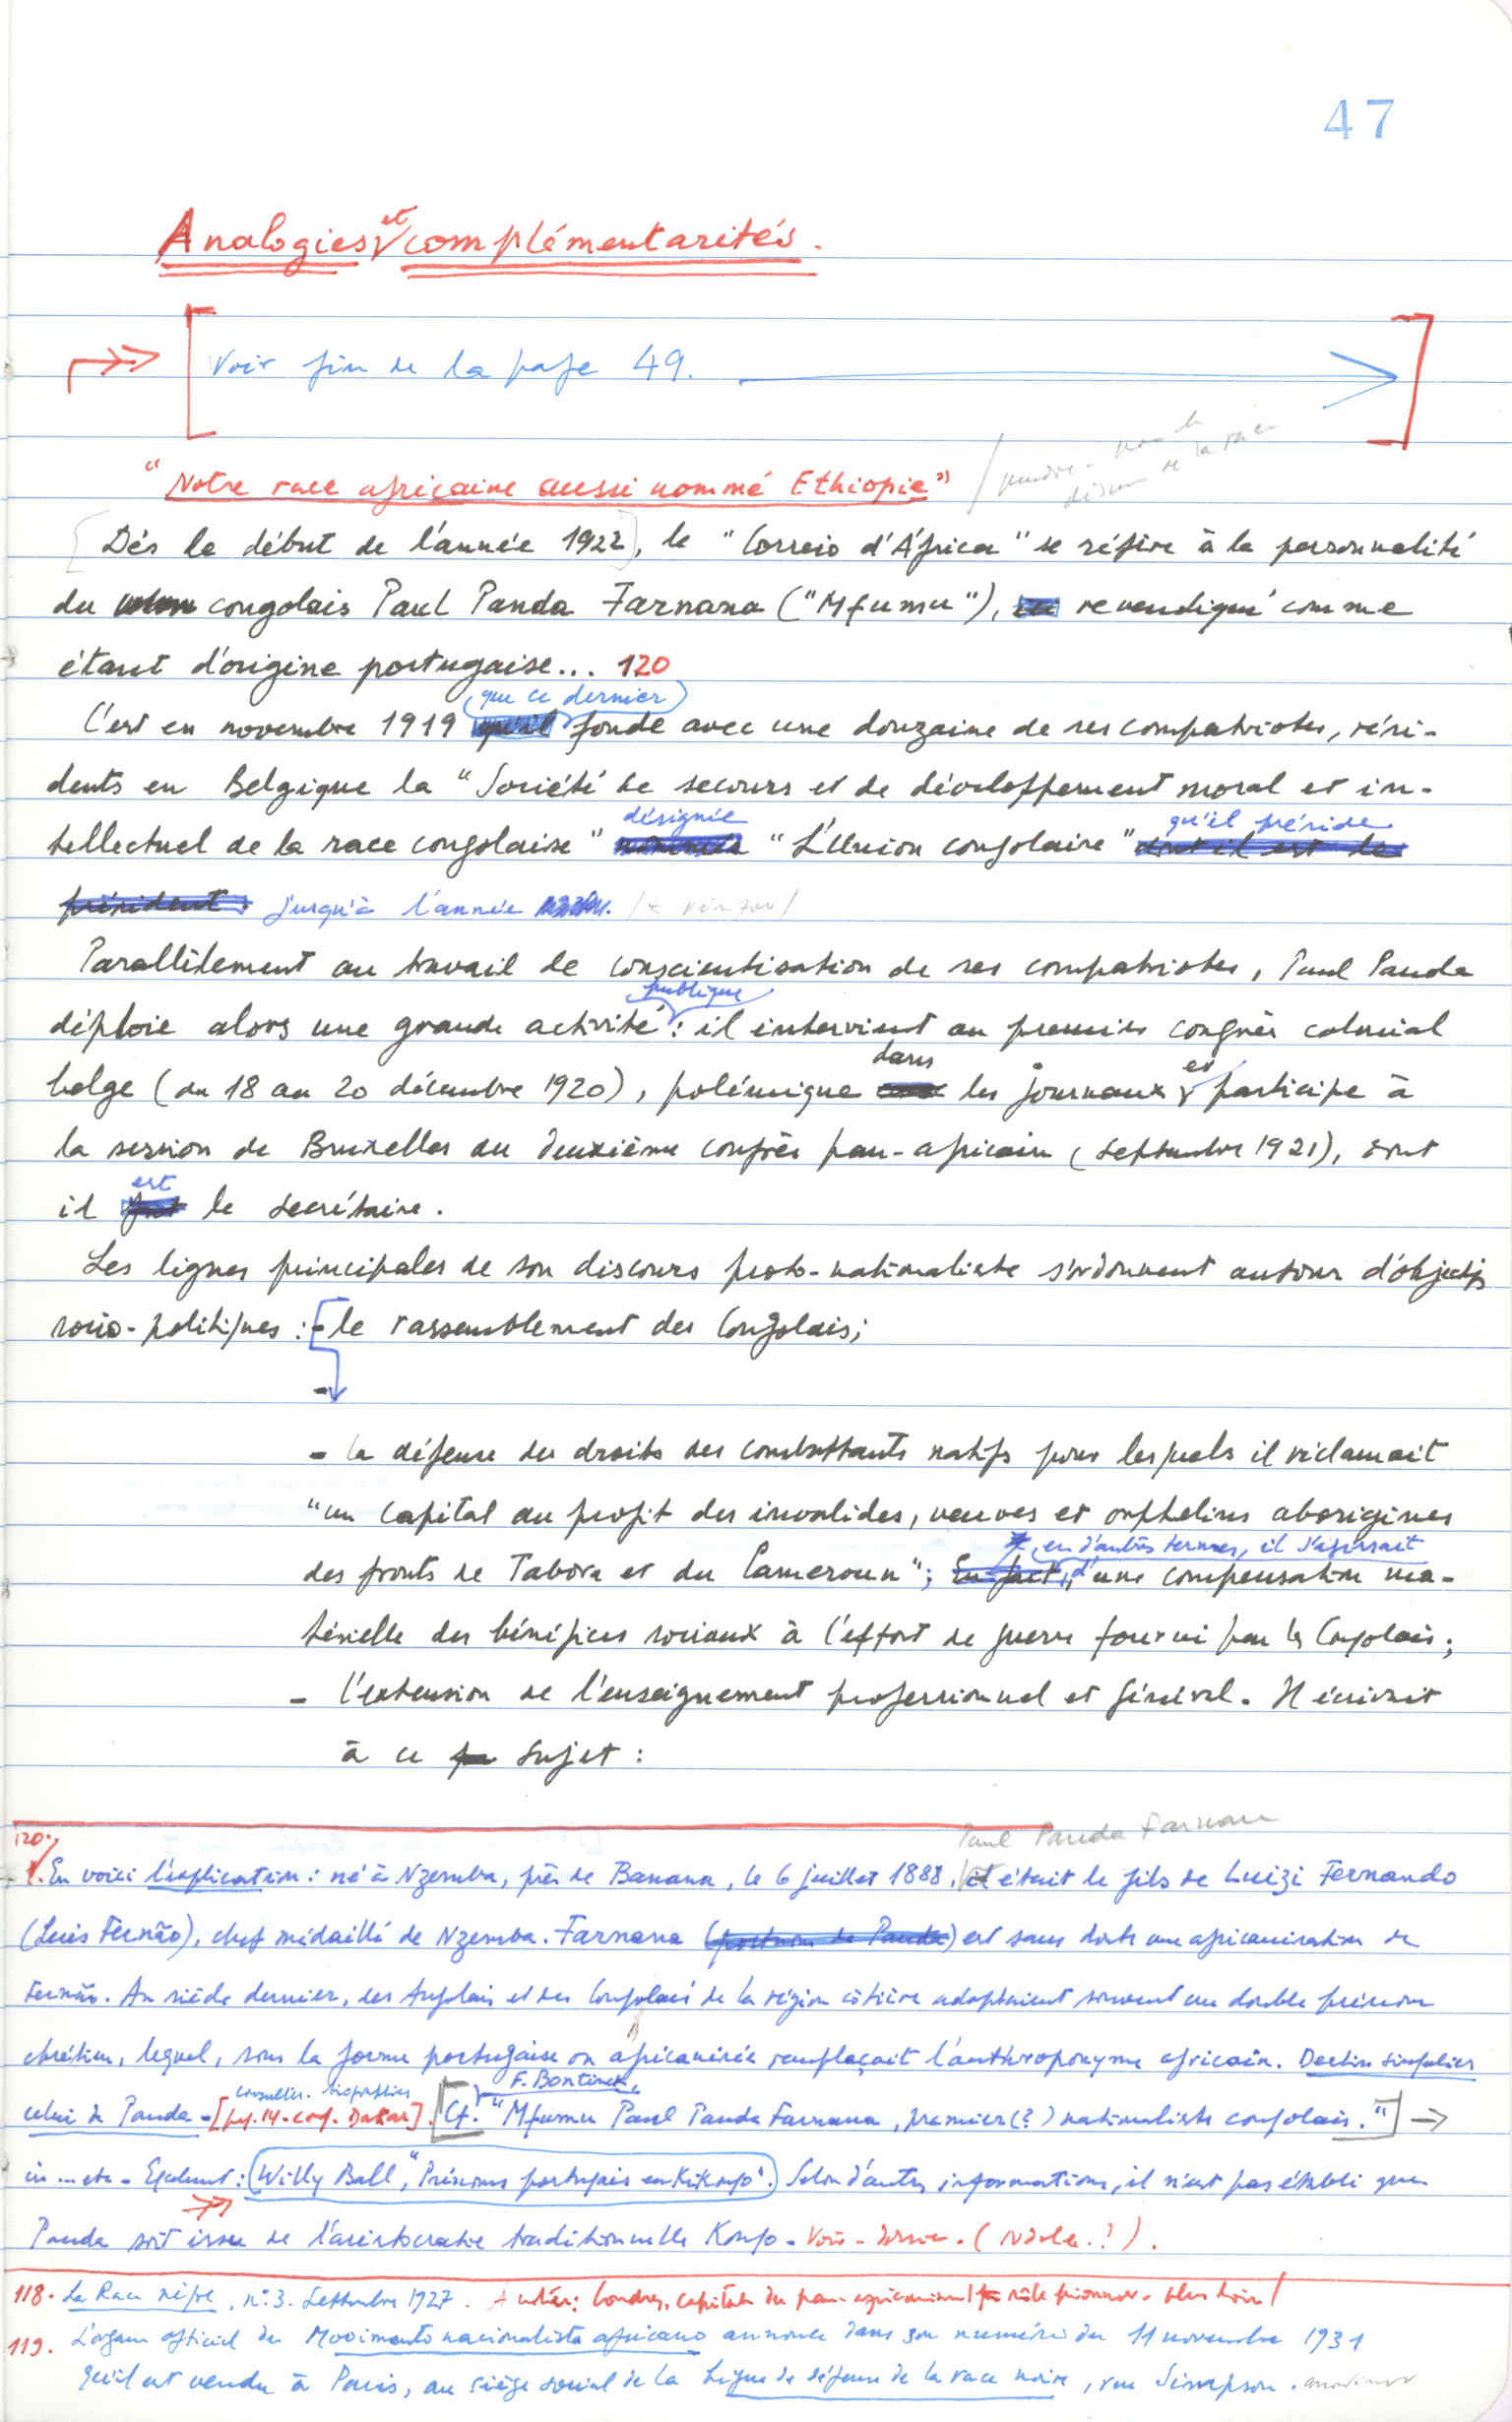 47
Analogies et complémentarités.
Voir fin de la page 49.
"Notre race africaine aussi nommé Ethiopie"
Dès le début de l'année 1922, le "Correio d'Africa" se réfère à la personnalité
du congolais Paul Panda Farnana ("Mfumu"), revendiqué comme
étant d'origine portugaise... 120
C'est en novembre 1919 que ce dernier fonde avec une douzaine de ses compatriotes, rési-
dents en Belgique la "Société de secours et de développement moral et in-
tellectuel de la race congolaise" désignée "L'Union congolaise" qu'il préside
jusqu'à l'année
Parallèlement au travail de conscientisation de ses compatriotes, Paul Panda
déploie alors une grande activité publique : il intervient au premier congrès colonial
belge (du 18 au 20 décembre 1920), polémique dans les journaux et participe à
la session de Bruxelles du deuxième congrès pan-africain (septembre 1921), dont
il est le secrétaire.
Les lignes principales de son discours proto-nationaliste s'ordonnent autour d'objectifs
socio-politiques : - le rassemblement des Congolais;
-
- la défense des droits des combattants natifs pour lesquels il réclamait
"un capital au profit des invalides, veuves et orphelins aborigènes
des fronts de Tabora et du Cameroun"; en d'autres termes, il s'agissait d'une compensation ma-
térielle des bénéfices sociaux à l'effort de guerre fourni par les Congolais;
- l'extension de l'enseignement professionnel et général. Il écrivait
à ce sujet :
Paul Panda Farnana
120. En voici l'explication : né à Nzemba, près de Banana, le 6 juillet 1888, il était le fils de Luizi Fernando
(Luis Fernão), chef médaillé de Nzemba. Farnana est sans doute une africanisation de
Fernão. Au siècle dernier, des Angolais et des Congolais de la région côtière adoptaient souvent un double prénom
chrétien, lequel, sous la forme portugaise ou africanisée remplaçait l'anthroponyme africain. Destin singulier
celui de Panda - [pg. 14 - conf. Dakar]. [Cf. F. Bontinck, "Mfumu Paul Panda Farnana, premier (?) nationaliste congolais."] →
in ... etc - Egalement : Willy Ball, "Prénoms portugais en Kikongo". Selon d'autres informations, il n'est pas établi que
Panda soit issu de l'aristocratie traditionnelle Kongo -
118. La Race nègre, n: 3. Septembre 1927. Londres, capitale du pan-africanisme / rôle pionnier - plus loin /
119. L'organe officiel du Movimento nacionalista africano annonce dans son numéro du 11 novembre 1931
qu'il est vendu à Paris, au siège social de la Ligue de défense de la race noire, rue Simpson.